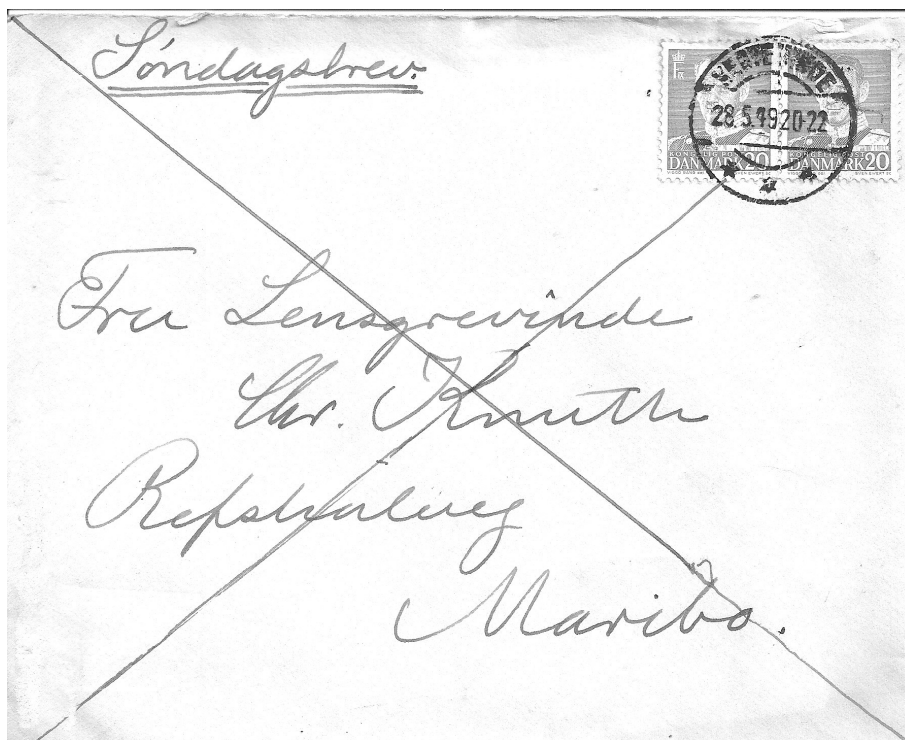 Søndagsbrev.
28.5.49 20-22
DANMARK 20
DANMARK 20
Fru Lensgrevinde
Chr. Knuth
Refshalevej
Maribo.